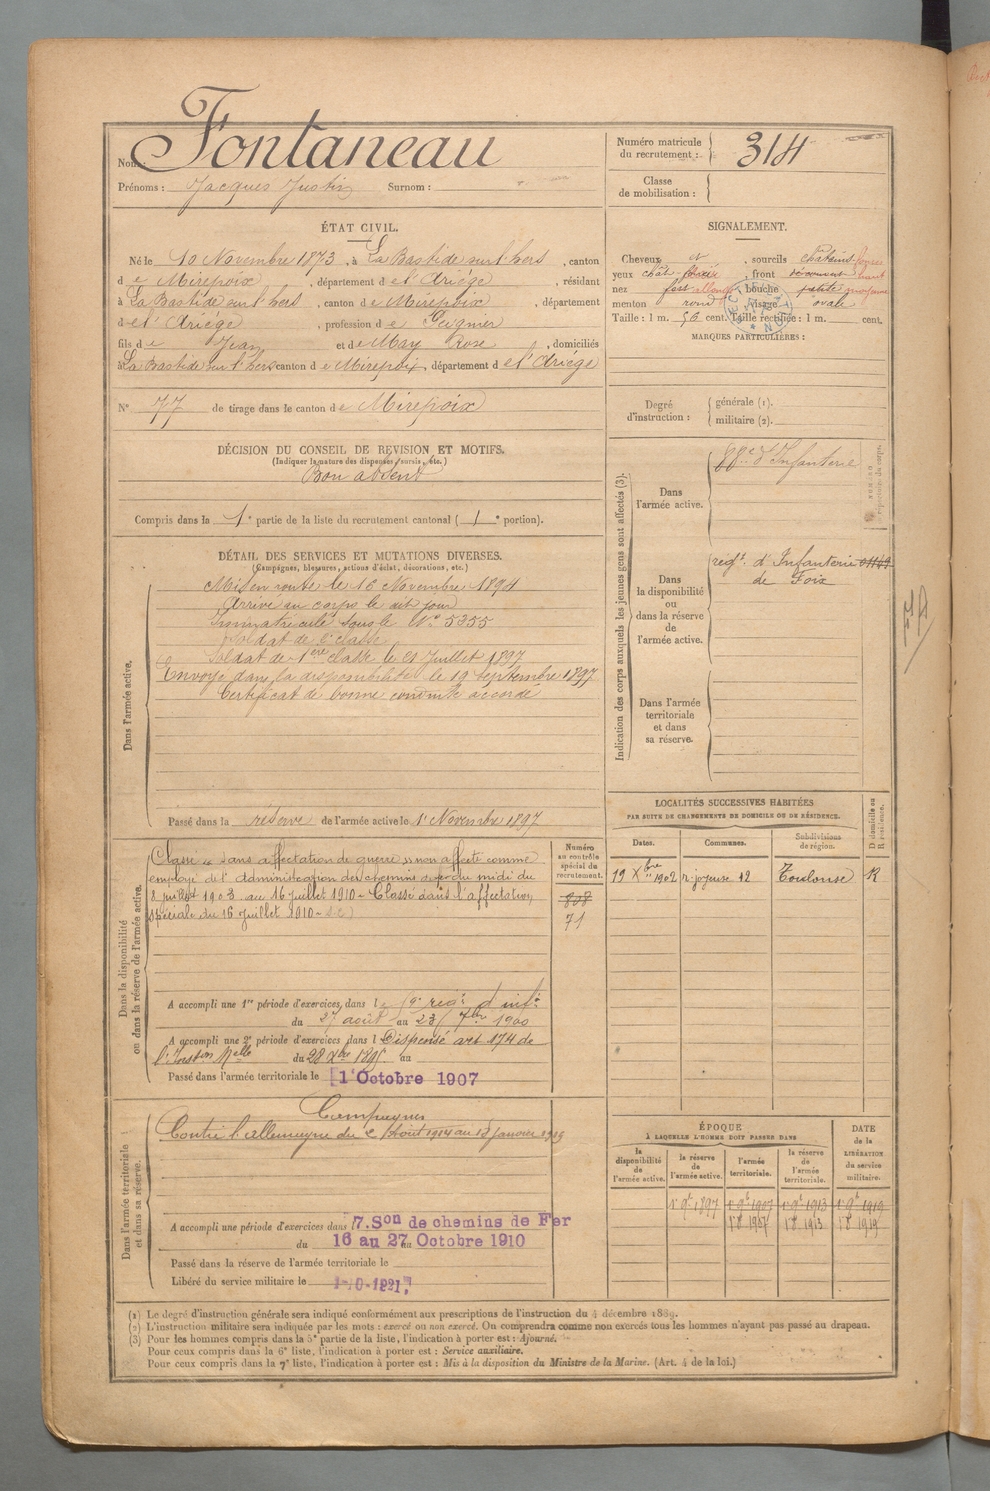 Nom : Fontaneau
Prénoms : Jacques Justin Surnom :
Numéro matricule du recrutement : 314
Classe de mobilisation :
ÉTAT CIVIL.
Né le 10 Novembre 1873, à La Bastide sur l'hers, canton
de Mirepoix, département de l'Ariége, résidant
à La Bastide sur l'hers, canton de Mirepoix, département
de l'Ariége, profession de Peignier
fils de Jean et de May Rose, domiciliés
à La Bastide sur l'hers canton de Mirepoix, département de l'Ariége
N° 77 de tirage dans le canton de Mirepoix
SIGNALEMENT.
Cheveux , sourcils châtains
yeux chât , front découvert haut
nez , bouche petite moyenne
menton rond visage ovale
Taille : 1 m. 56 cent. Taille rectifiée : 1 m. cent.
MARQUES PARTICULIÈRES :
Degré d'instruction : générale (1).
militaire (2).
DÉCISION DU CONSEIL DE REVISION ET MOTIFS.
(Indiquer la nature des dispenses, sursis, etc.)
Bon absent
Compris dans la 1e partie de la liste du recrutement cantonal ( 1e portion).
DÉTAIL DES SERVICES ET MUTATIONS DIVERSES.
(Campagnes, blessures, actions d'éclat, décorations, etc.)
Dans l'armée active.
Mis en route le 16 Novembre 1894
Arrivé au corps le dit jour
Immatriculé sous le N° 5355
Soldat de 2e classe
Soldat de 1ère classe le 21 Juillet 1897
Envoyé dans la disponibilité le 19 septembre 1897
Certificat de bonne conduite accordé
Passé dans la réserve de l'armée active le 1er Novembre 1897
Indication des corps auxquels les jeunes gens sont affectés (3).
Dans l'armée active.
88e d'Infanterie
Dans la disponibilité ou dans la réserve de l'armée active.
régt. d'Infanterie
de Foix
Dans l'armée territoriale et dans sa réserve.
Dans la disponibilité ou dans la réserve de l'armée active.
Classé "sans affectation de guerre" non affecté comme
employé de l'administration des chemins de fer du midi du
8 juillet 1903 au 16 juillet 1910 - Classé dans l'affectation
spéciale du 16 juillet 1910
Numéro au contrôle spécial du recrutement.
808
71
A accompli une 1re période d'exercices dans le régt. d'inf.
du 27 août au 23 7bre 1900
A accompli une 2e période d'exercices dans l Dispensé art 174 de
l'Inston Melle du 28 Xbre 1895 au
Passé dans l'armée territoriale le 1 Octobre 1907
LOCALITÉS SUCCESSIVES HABITÉES
PAR SUITE DE CHANGEMENTS DE DOMICILE OU DE RÉSIDENCE.
Dates. Communes. Subdivisions de région. D domicile ou R résidence.
19 Xbre 1902 r. joyeuse 12 Toulouse R
Dans l'armée territoriale et dans sa réserve.
Campagnes
Contre l'allemagne du 2 Août 1914 au 13 janvier 1919
A accompli une période d'exercices dans 7.Son de chemins de Fer
du 16 au 27 Octobre 1910
Passé dans la réserve de l'armée territoriale le
Libéré du service militaire le
ÉPOQUE
À LAQUELLE L'HOMME DOIT PASSER DANS
DATE de la LIBÉRATION du service militaire.
la disponibilité de l'armée active. la réserve de l'armée active. l'armée territoriale. la réserve de l'armée territoriale.
1897 1907 1913 1919
1907 1913 1919
(1) Le degré d'instruction générale sera indiqué conformément aux prescriptions de l'instruction du 4 décembre 1889.
(2) L'instruction militaire sera indiquée par les mots : exercé ou non exercé. On comprendra comme non exercés tous les hommes n'ayant pas passé au drapeau.
(3) Pour les hommes compris dans la 5e partie de la liste, l'indication à porter est : Ajourné.
Pour ceux compris dans la 6e liste, l'indication à porter est : Service auxiliaire.
Pour ceux compris dans la 7e liste, l'indication à porter est : Mis à la disposition du Ministre de la Marine. (Art. 4 de la loi.)